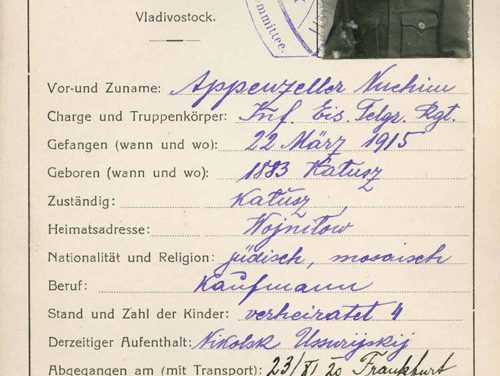 Vladivostock.
Committee.
Vor-und Zuname: Appenzeller Nuchim
Charge und Truppenkörper: Inf. Eis. Telgr. Rgt.
Gefangen (wann und wo): 22 März 1915
Geboren (wann und wo): 1883 Katusz
Zuständig: Katusz
Heimatsadresse: Wojniłow
Nationalität und Religion: jüdisch, mosaisch
Beruf: Kaufmann
Stand und Zahl der Kinder: verheiratet 4
Derzeitiger Aufenthalt: Nikolsk Ussurijskij
Abgegangen am (mit Transport): 23/XI 20 Frankfurt